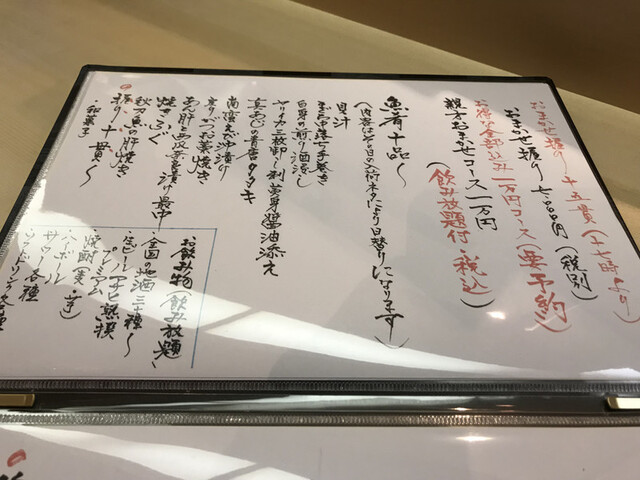 おまかせ握り十五貫(十七時より)
おまかせ握り七品円(税別)
お得な全部込み一万円コース(要予約)
親方おまかせコース一万円
(飲み放題付・税込)
魚肴十品〜
(内容はその日の入荷ネタにより日替りになります)
貝汁
手巻き
白身の煎り酒浸し
ヤリイカ三枚卸し刺 醤油添え
真あじの
南蛮えび沖漬け
葉焼き
あん肝と皮芽葱漬け最中
焼きふぐ
秋刀魚の肝焼き
握り十貫〜
・和菓子
お飲み物 飲み放題
・全国の地酒三十種〜
・生ビール
プレミアム
・焼酎(麦・芋)
・ハイボール
・サワー各種
・ソフトドリンク各種